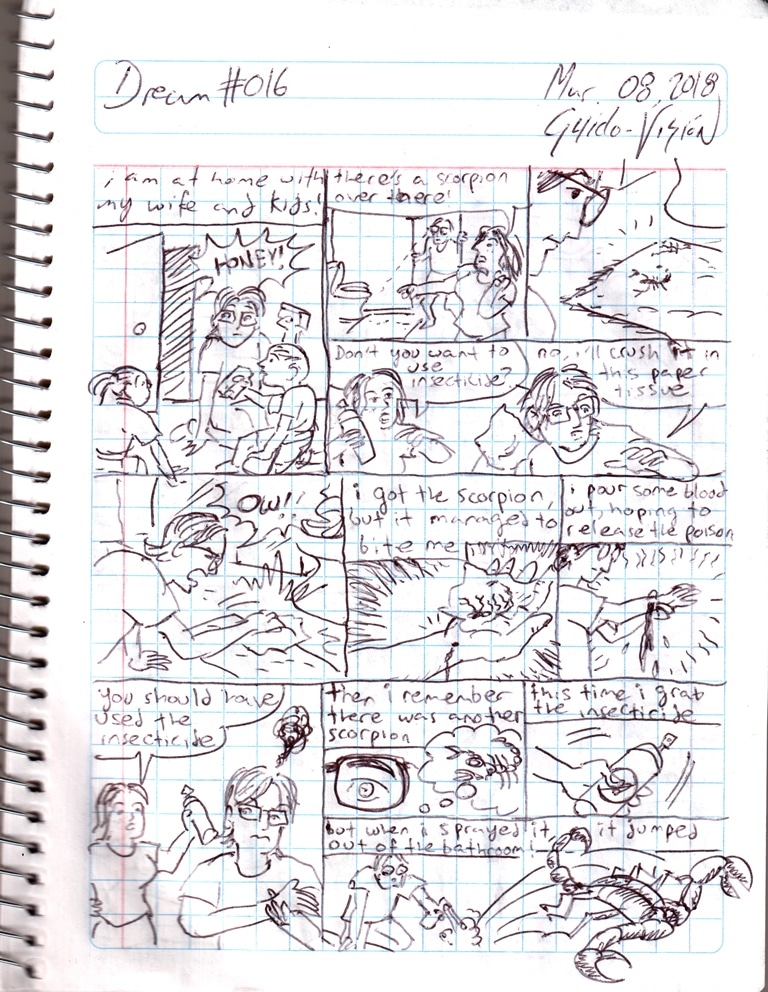 Dream #016
Mar. 08, 2018
Guido-Visión
i am at home with
my wife and kids!
HONEY!
there's a scorpion
over there!
Don't you want to
use
insecticide?
no, i'll crush it in
this paper
tissue
OW!!
i got the scorpion,
but it managed to
bite me
i pour some blood
out, hoping to
release the poison
you should have
used the
insecticide
then i remember
there was another
scorpion
this time i grab
the insecticide
but when i sprayed it, it jumped
out of the bathroom!